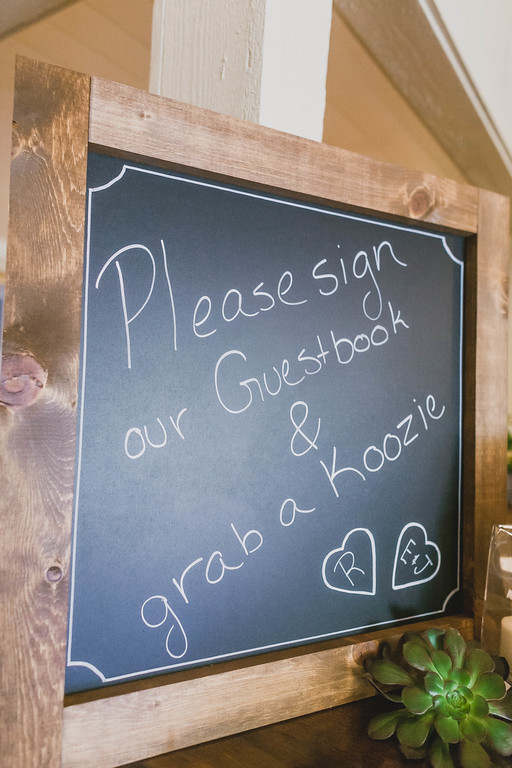 Please sign
our Guestbook
&
grab a Koozie
R E&J